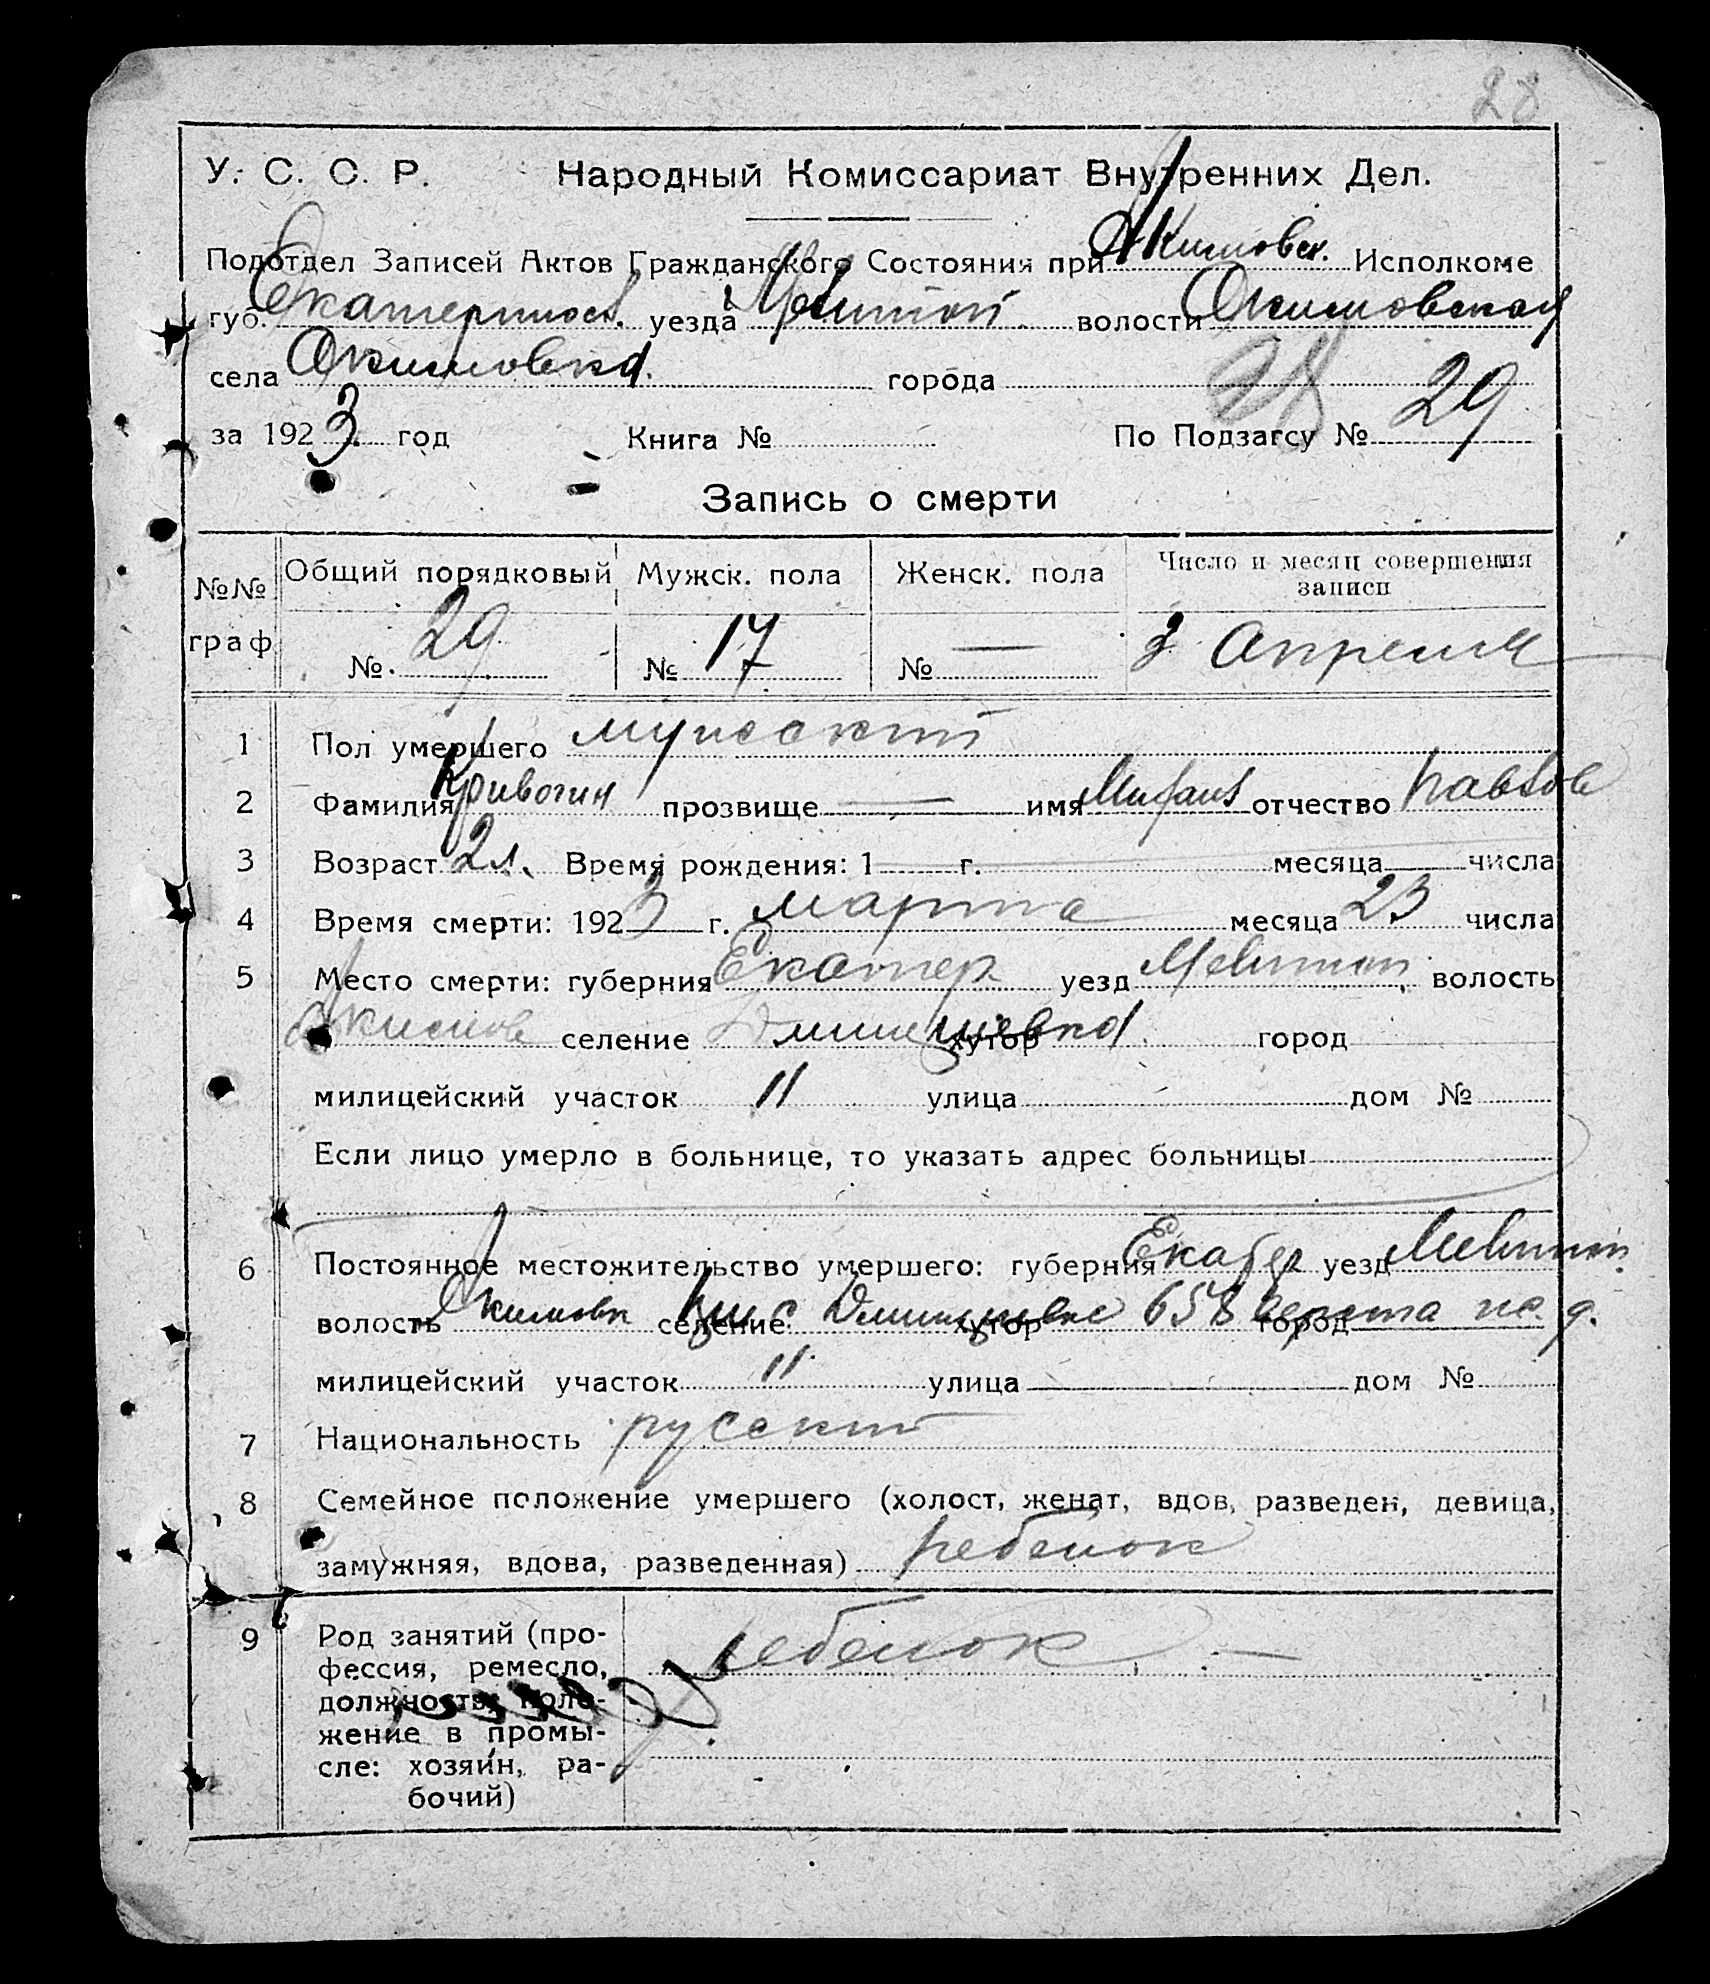 28
У. С. С. Р. Народный Комиссариат Внутренних Дел.
Подотдел Записей Актов Гражданского Состояния при Акимовск. Исполкоме
губ. Екатериносл. уезда Мелитоп. волости Акимовская
села Акимовка. города 28
за 1923 год Книга № По Подзагсу № 29
Запись о смерти
№№ граф. Общий порядковый Мужск. пола Женск. пола Число и месяц совершения записи
№ 29 № 17 № — 3 Апреля
1 Пол умершего мужской
2 Фамилия прозвище — имя отчество Павлов
3 Возраст 2 л. Время рождения: 1 г. месяца числа
4 Время смерти: 1923 г. марта месяца 23 числа
5 Место смерти: губерния Екатер уезд Мелитоп. волость
Акимов селение хутор город
милицейский участок 11 улица дом №
Если лицо умерло в больнице, то указать адрес больницы
6 Постоянное местожительство умершего: губерния Екатер уезд Мелитоп.
волость Акимовк селение хутор 658 верста город
милицейский участок 11 улица дом №
7 Национальность русский
8 Семейное положение умершего (холост, женат, вдов, разведен, девица,
замужняя, вдова, разведенная) ребенок
9 Род занятий (про-
фессия, ремесло,
должность, поло-
жение в промы-
сле: хозяин, ра-
бочий)
ребенок —